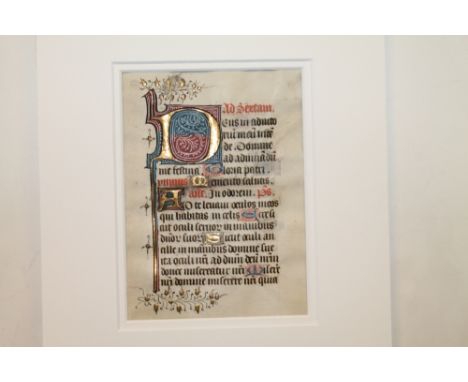 Ad Sextam.
Deus in adiuto
rium meum inten
de Domine
ad adiuuādū
me festina Gloria patri
ymnus Memento salutis
Añe. In odorem. ps̄.
Ad te leuaui oculos meos
qui habitas in celis Ecce si
cut oculi seruor̄ in manibus
dn̄or̄ suor̄ Sicut oculi an
cille in manibus domine sue
ita oculi nr̄i ad dn̄m deū nr̄m
donec misereatur nr̄i Miserē
nr̄i domine miserere nr̄i quia